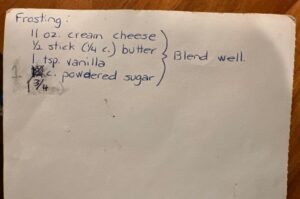 Frosting:
11 oz. cream cheese
½ stick (¼ c.) butter
1 tsp. vanilla
1 c. powdered sugar
(3/4
Blend well.